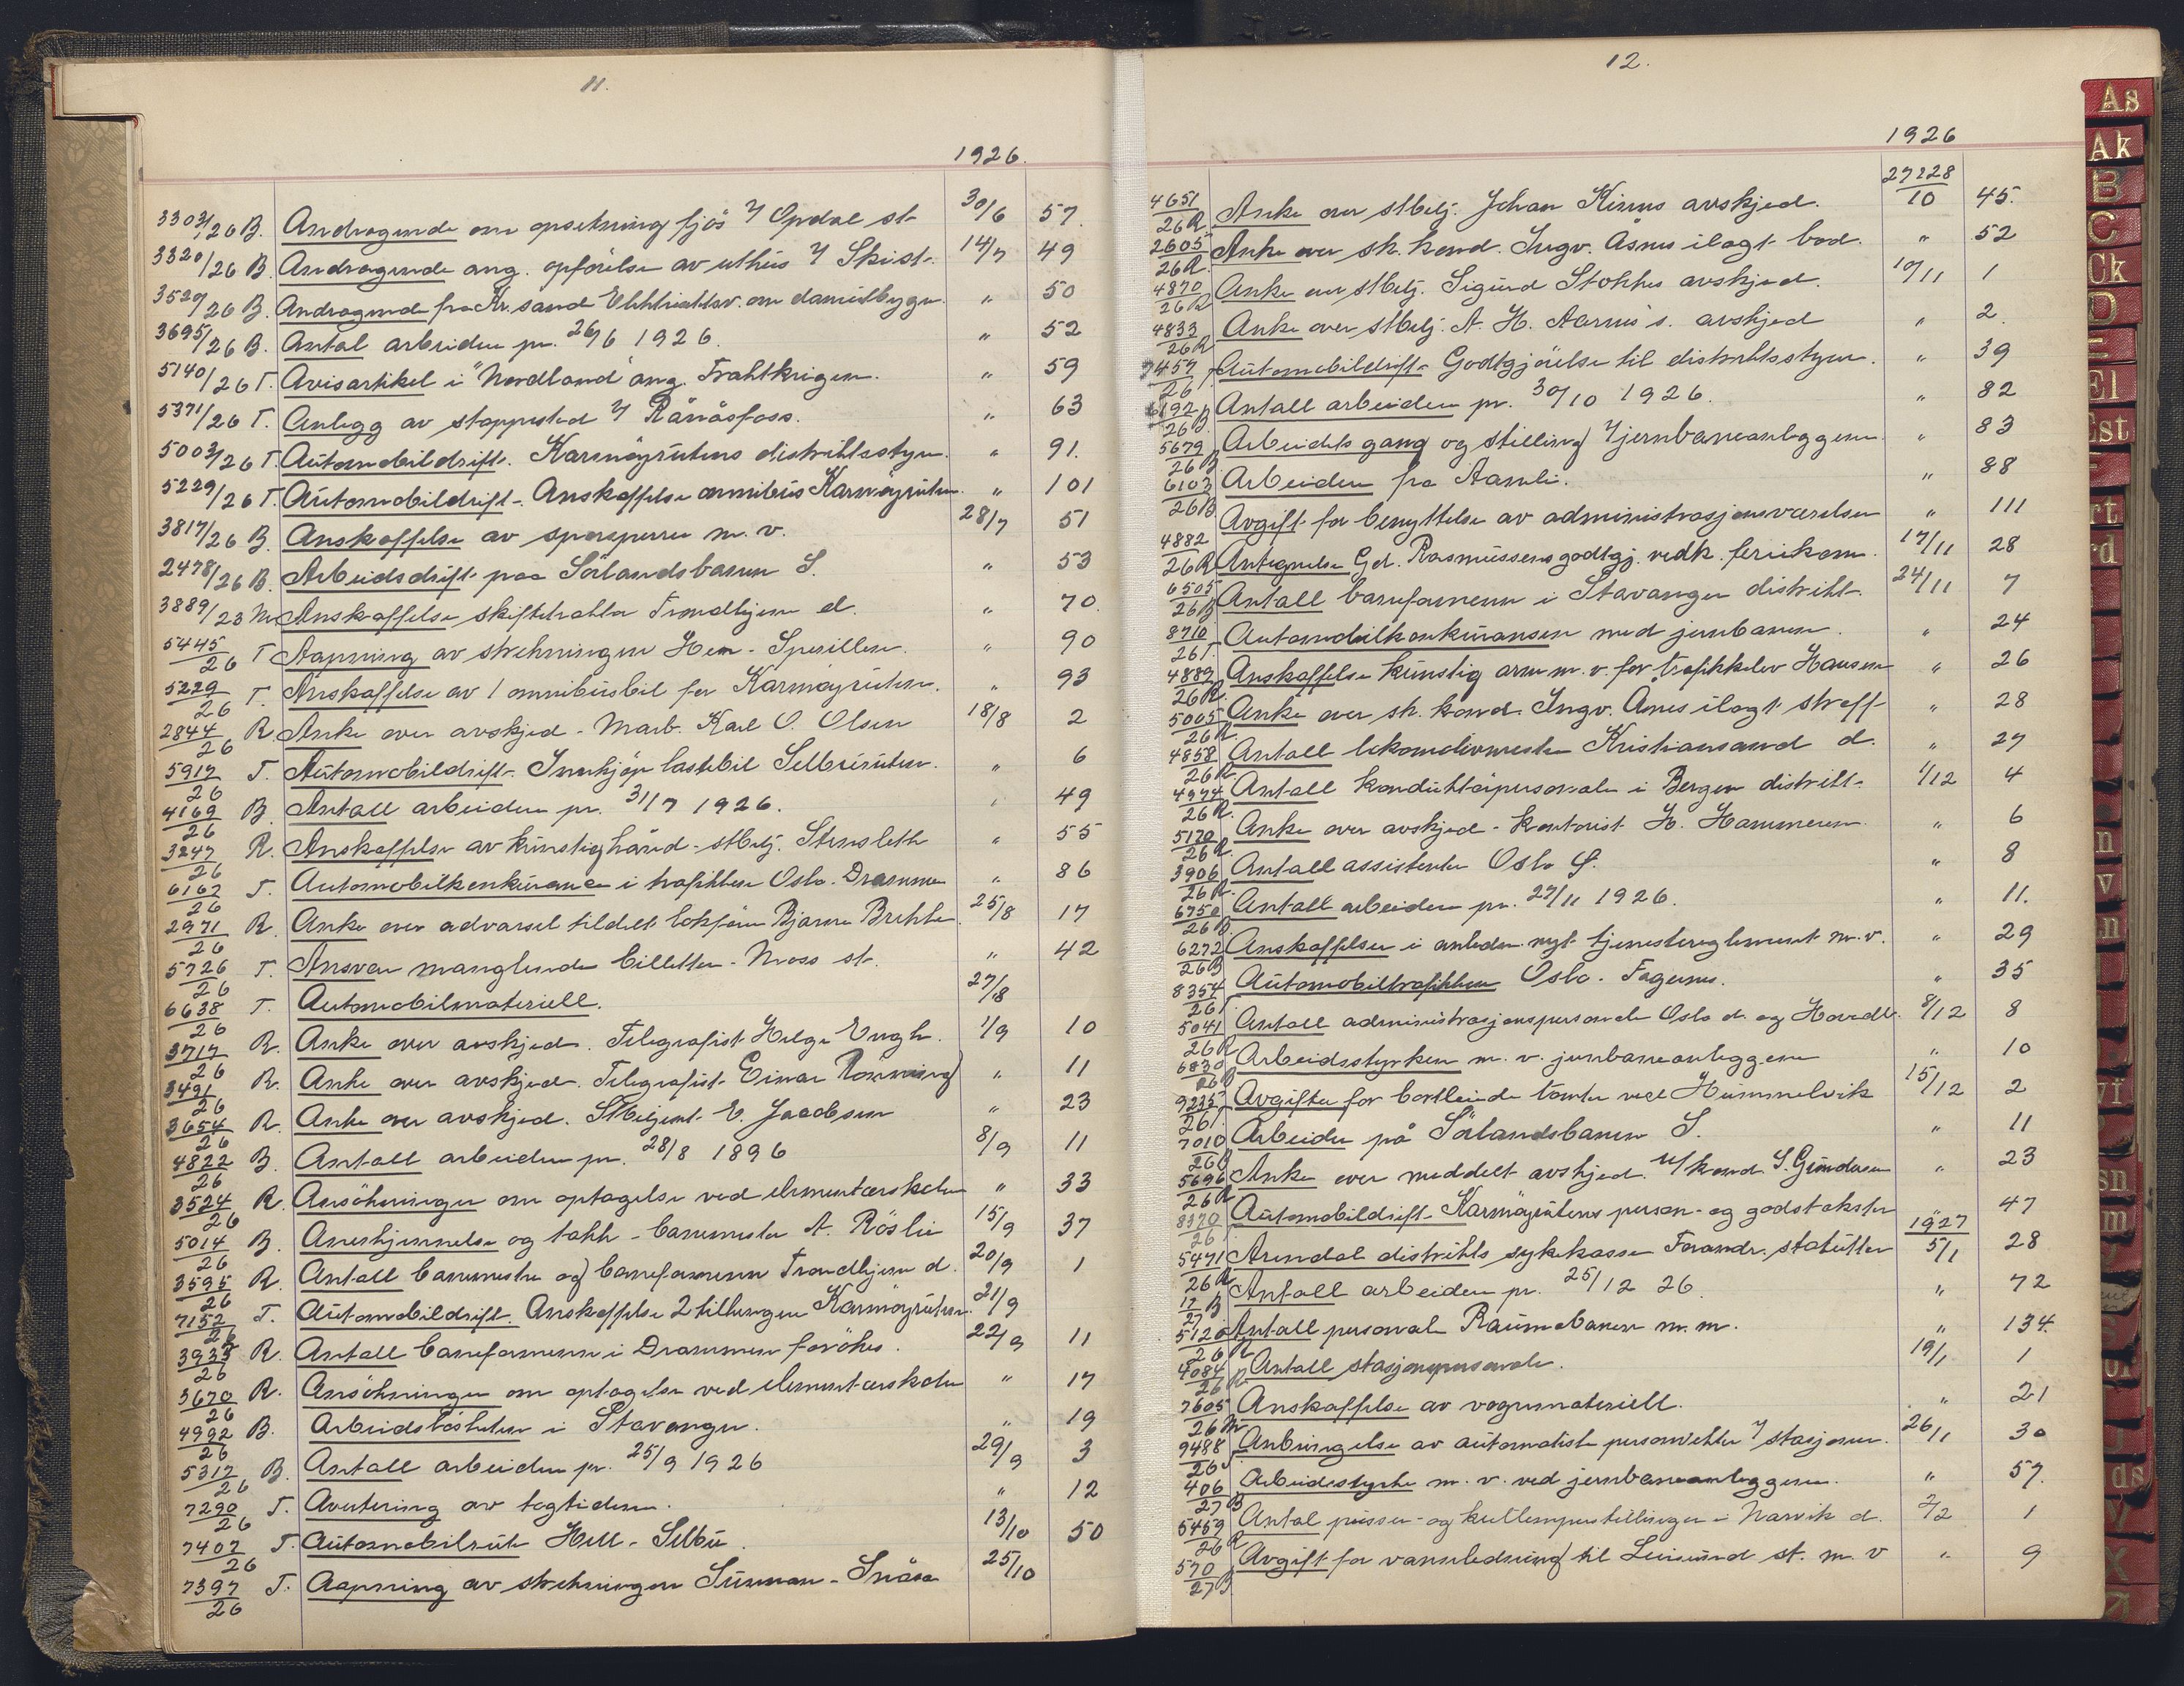 11.
1926.
3303/26 B. Andragende om opsetning fjøs 7/ Opdal st. 30/6 57.
3320/26 B. Andragende ang. opførelse av uthus 7/ Ski st. 14/7 49
3529/26 B. Andragende fra Kr.sand om „ 50
3695/26 B. Antal arbeidere pr. 26/6 1926. „ 52
5140/26 T. Avisartikel i "Nordland" ang. Fraktkrigen. „ 59
5371/26 T. Anlegg av stoppested 7/ Rånåsfoss. „ 63
5003/26 T. Automobildrift. Karmøyrutens distriktsstyre. „ 91.
5229/26 T. Automobildrift. Anskaffelse omnibus Karmøyruten. „ 101
3817/26 B. Anskaffelse av sporsperrer m. v. 28/7 51
2478/26 B. Arbeidsdrift paa Sørlandsbanen S. „ 53
3889/23 M Anskaffelse skiftetraktor Trondhjem d. „ 70.
5445/26 T Aapning av strekningen Hen - Sperillen. „ 90
5229/26 T. Anskaffelse av 1 omnibusbil for Karmøyruten. „ 93
2844/26 R. Anke over avskjed - Marb. Karl O. Olsen 18/8 2
5917/26 T. Automobildrift. Innkjøp lastebil Selburuten. „ 6
4169/26 B. Antall arbeidere pr. 31/7 1926. „ 49
3247/26 R. Anskaffelse av kunstig hånd - stbtj. Stensleth „ 55
6162/26 T. Automobilkonkurance i trafikken Oslo - Drammen „ 86
2971/26 R. Anke over advarsel tildelt lokfører Bjarne Brekke 25/8 17
5726/26 T. Ansvar manglende billetter - Moss st. „ 42
6638/26 T. Automobilmateriell. 27/8
3717/26 R. Anke over avskjed. Telegrafist Helge Engh. 1/9 10
3491/26 R. Anke over avskjed. Telegrafist Einar Rønning „ 11
3654/26 R. Anke over avskjed. Stbetjent E. Jacobsen „ 23
4822/26 B. Antall arbeidere pr. 28/8 1896 8/9 11
3524/26 R. Ansøkninger om optagelse ved elementærskolen „ 33
5014/26 B. Anerkjennelse og takk - banemester A. Røslie 15/9 37
3595/26 R. Antall banemestre og baneformenn Trondhjem d. 20/9 1
7152/26 T. Automobildrift. Anskaffelse 2 tilhengere Karmøyruten. 21/9
3933/26 R. Antall baneformenn i Drammen forøkes. 22/9 11
3670/26 R. Ansøkninger om optagelse ved elementærskolen „ 17
4992/26 B. Arbeidsløsheten i Stavanger. „ 19
5317/26 B. Antall arbeidere pr. 25/9 1926 29/9 3
7290/26 T. Avertering av togtidene. „ 12
7407/26 T. Automobilrute Hell - Selbu. 13/10 50
7397/26 T. Aapning av strekningen Sunnan - Snåsa 25/10
12.
1926
4651/26 R. Anke over stbetj. Johan Kinns avskjed. 27 & 28/10 45.
2605/26 R. Anke over sk. kond. Ingv. Åsnes ilagt bod. „ 52
4870/26 R Anke over stbetj. Sigurd Stokkes avskjed. 10/11 1
4833/26 R Anke over stbetj. A. H. Aarnes's. avskjed „ 2.
7457/26 T Automobildrift - Godtgjørelse til distriktsstyrer. „ 39
6192/26 B Antall arbeidere pr. 30/10 1926. „ 82
5679/26 B Arbeidets gang og stilling 7/ jernbaneanleggene. „ 83
6103/26 B Arbeidere fra Aamli. „ 88
Avgift for benyttelse av administrasjonsværelser „ 111
4882/26 R Antegnelse Gd. Rasmussens godtgj. vedk. feriekom. 17/11 28
6505/26 B Antall baneformenn i Stavanger distrikt. 24/11 7
8710/26 T. Automobilkonkuransen med jernbanen. „ 24
4889/26 R. Anskaffelse kunstig arm m. v. for trafikkelev Hansen „ 26
5005/26 R. Anke over sk. kond. Ingv. Åsnes ilagt straff „ 28
4858/26 R Antall lokomotivmestre Kristiansand d. „ 27
4974/26 R. Antall konduktørpersonale i Bergen distrikt. 1/12 4
5170/26 R. Anke over avskjed - kontorist H. Hammeren „ 6
3906/26 R. Antall assistenter Oslo Ø. „ 8
6750/26 B. Antall arbeidere pr. 27/11 1926. „ 11.
6272/26 B Anskaffelser i anledn. nytt tjenestereglement m. v. „ 29
8354/26 T Automobiltrafikken Oslo - Fagernes. „ 35
5041/26 R Antall administrasjonspersonale Oslo d. og Hovedst. 8/12 8
6830/26 B Arbeidsstyrken m. v. jernbaneanleggene „ 10
9235/26 T. Avgifter for bortleiede tomter ved Hummelvik 15/12 2
7010/26 B Arbeider på Sørlandsbanen S. „ 11
5696/26 R Anke over meddelt avskjed. u/kond. S. Gundersen „ 23
8370/26 Automobildrift - Karmøyrutens person- og godstakster „ 47
1927
5471/26 R Arendal distrikts sykekasse Forandr. statutter 5/1 28
17/27 B Antall arbeidere pr. 25/12 26. „ 72
5120/26 R Antall personale Raumabanen m. m. „ 134.
4084/26 R Antall stasjonspersonale. 19/1 1
7605/26 M Anskaffelse av vognmateriell. „ 21
9488/26 T Anbringelse av automatiske personvekter 7/ stasjoner. 26/1 30
406/27 B Arbeidsstyrke m. v. ved jernbaneanleggene. „ 57.
5459/26 R Antal pusser- og kullemperstillinger i Narvik d. 2/2 1
570/27 B Avgift for vannledning til Leirsund st. m. v „ 9
As
Ak
B
C
Ck
D
El